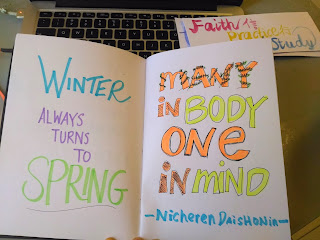 Faith
Practice
Study
WINTER
ALWAYS
TURNS
TO
SPRING
MANY
in BODY
ONE
in minD
-Nicheren DaisHonin-